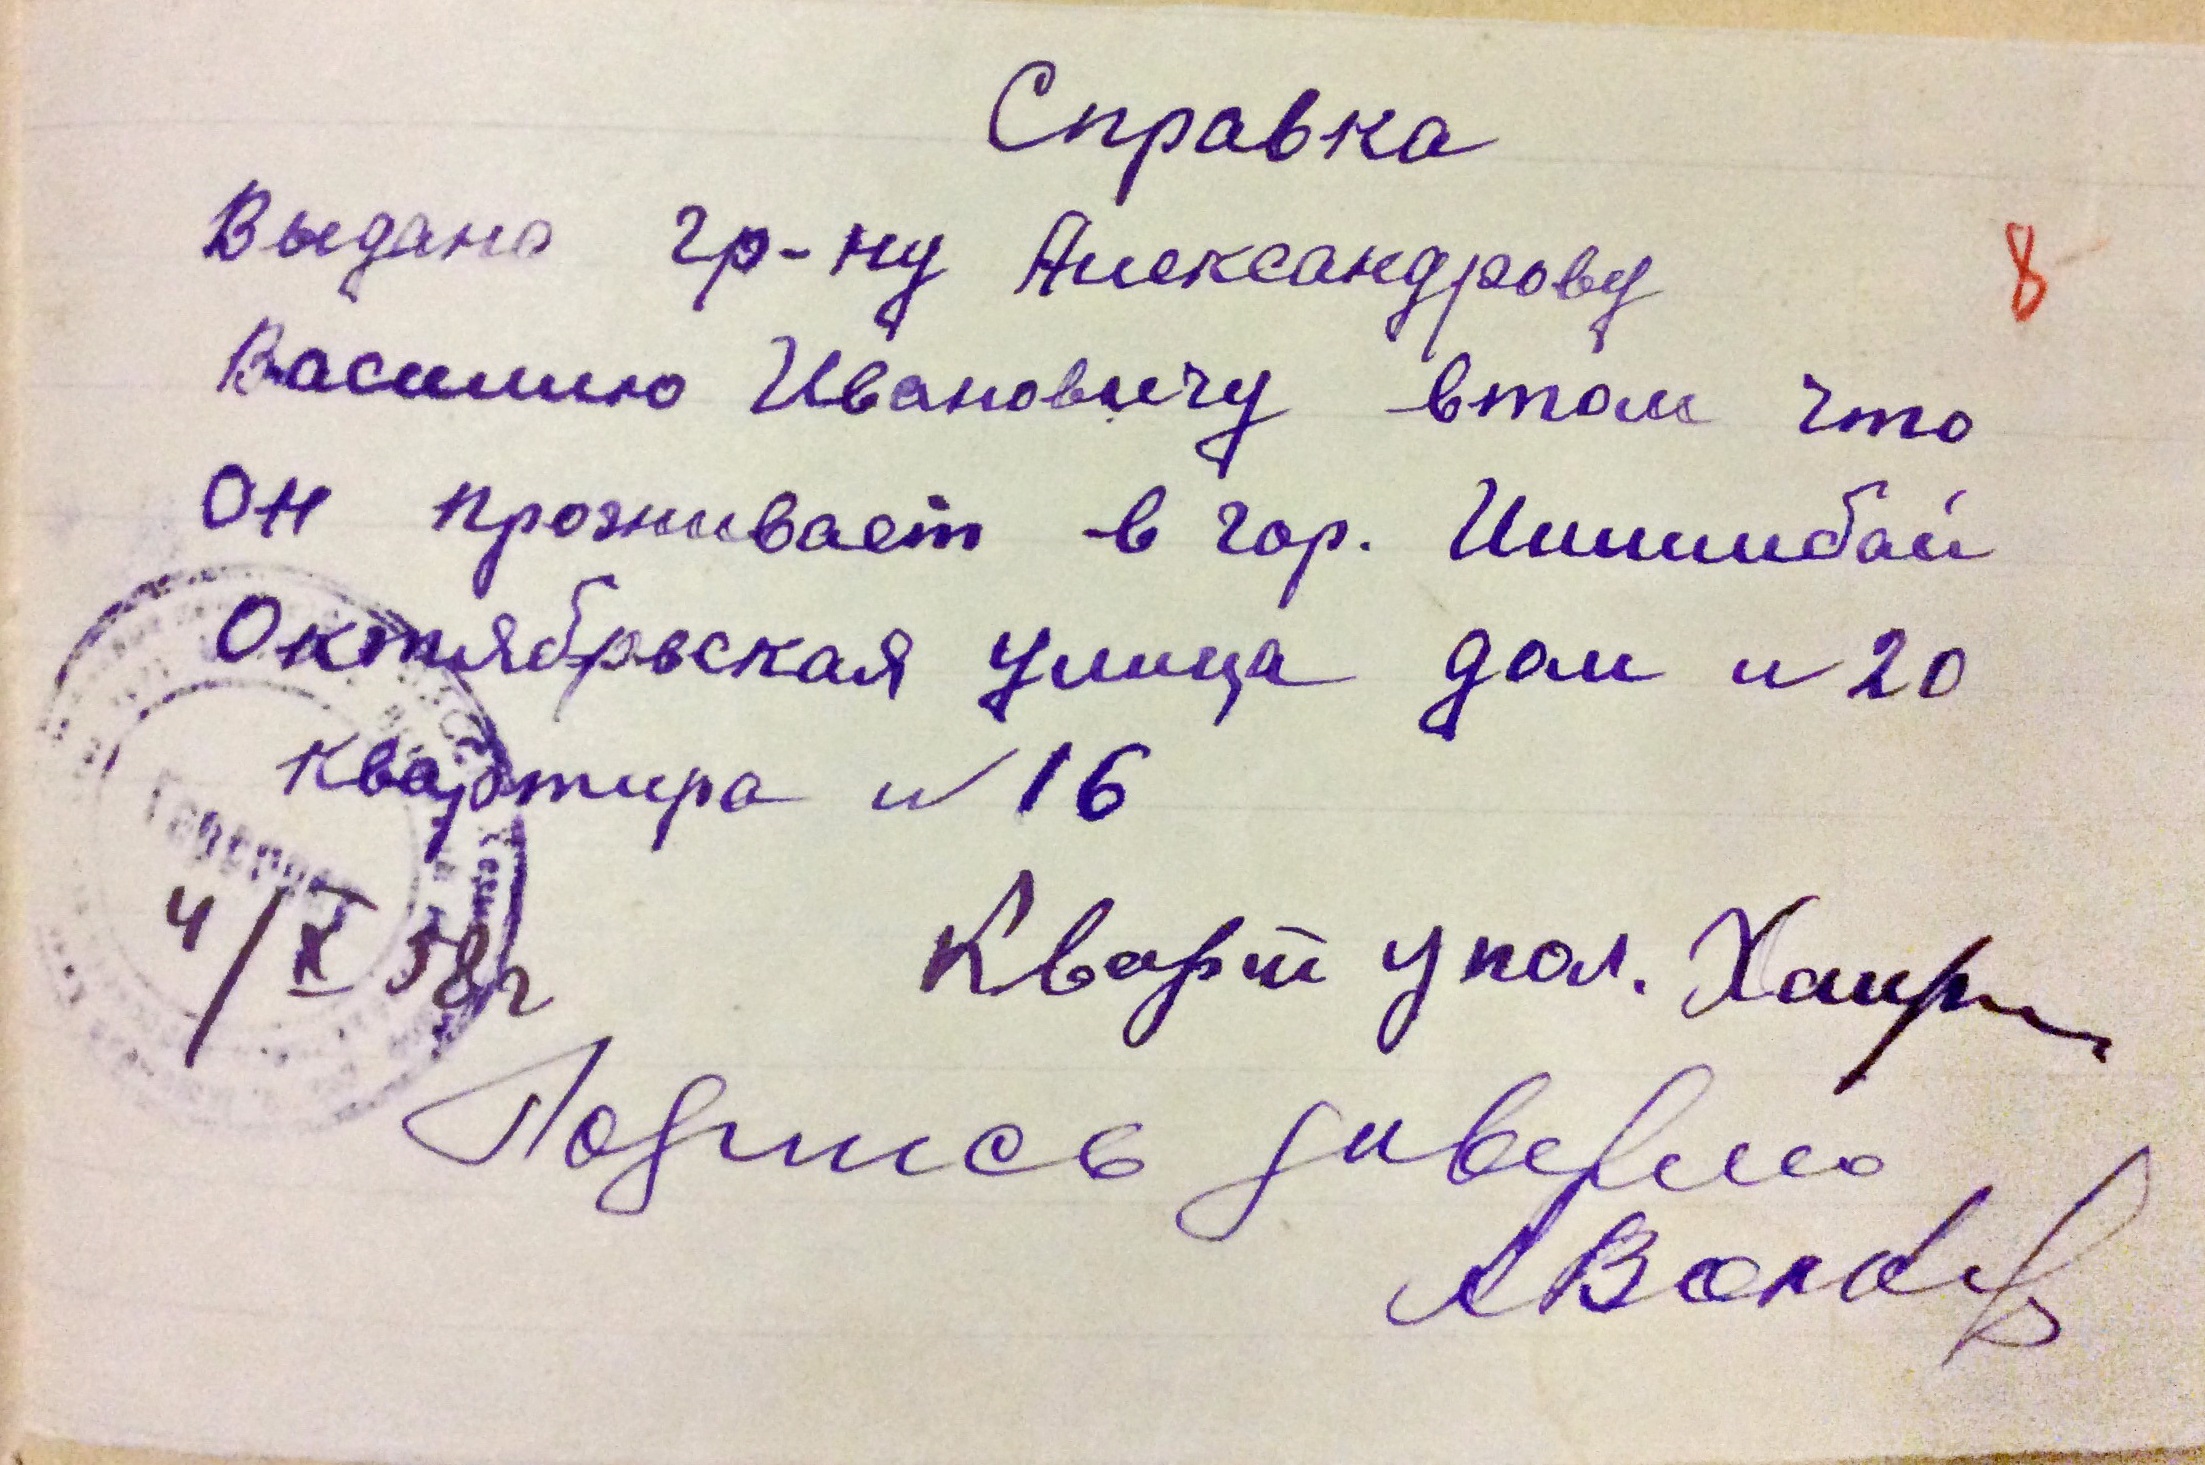 Справка
Выдано гр-ну Александрову
8
Василию Ивановичу втом что
Он проживает в гор. Ишимбай
Октябрьская улица дом N 20
квартира N 16
4/X 58г
Кварт упол.
Подпись заверяю